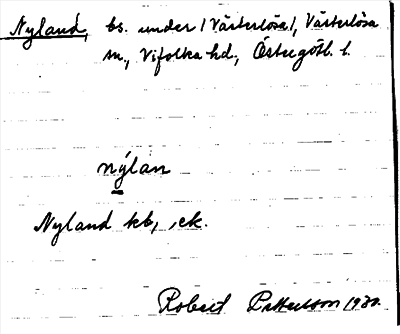 Nyland, bs. under /Västerlösa/, Västerlösa
sn, Vifolka hd., Östergötl. l.
nýlan
Nyland kb, ek.
Robert Pettersson 1930.